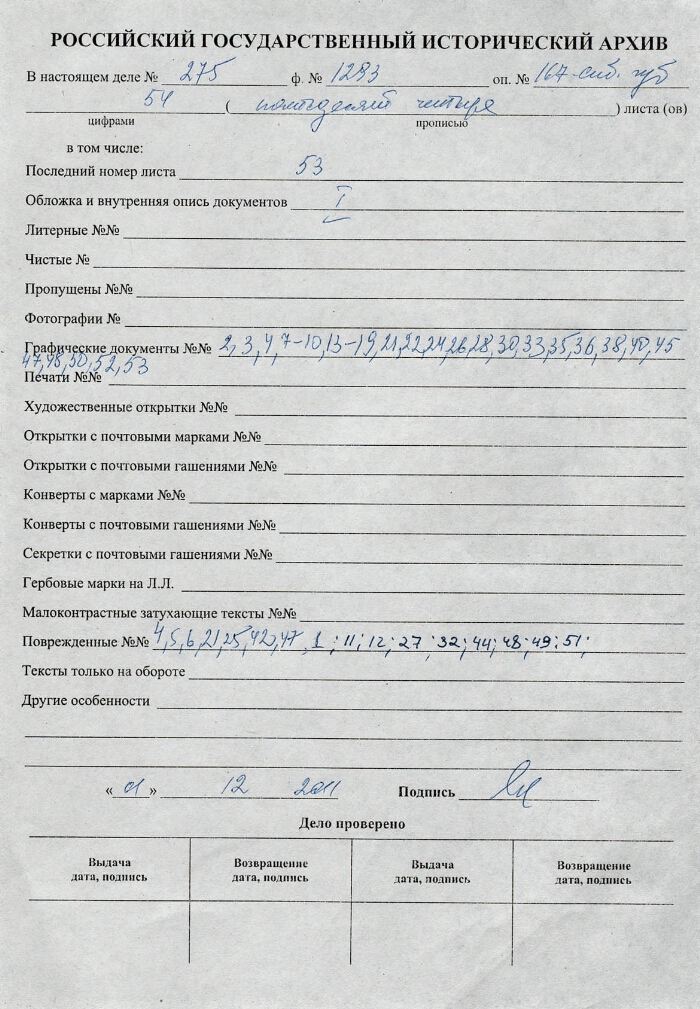 РОССИЙСКИЙ ГОСУДАРСТВЕННЫЙ ИСТОРИЧЕСКИЙ АРХИВ
В настоящем деле № 275 ф. № 1293 оп. № 167-сиб. губ
54 ( пятьдесят четыре ) листа (ов)
цифрами прописью
в том числе:
Последний номер листа 53
Обложка и внутренняя опись документов I
Литерные №№
Чистые №
Пропущены №№
Фотографии №
Графические документы №№ 2,3,4,7-10,13-19,21,22,24,26,28,30,33,35,36,38,40,45
47,48,50,52,53
Печати №№
Художественные открытки №№
Открытки с почтовыми марками №№
Открытки с почтовыми гашениями №№
Конверты с марками №№
Конверты с почтовыми гашениями №№
Секретки с почтовыми гашениями №№
Гербовые марки на Л.Л.
Малоконтрастные затухающие тексты №№
Поврежденные №№ 4,5,6,21,25,42,47, 1; 11; 12; 27; 32; 44; 48; 49; 51;
Тексты только на обороте
Другие особенности
« 01 » 12 2011 Подпись
Дело проверено
Выдача Возвращение Выдача Возвращение
дата, подпись дата, подпись дата, подпись дата, подпись